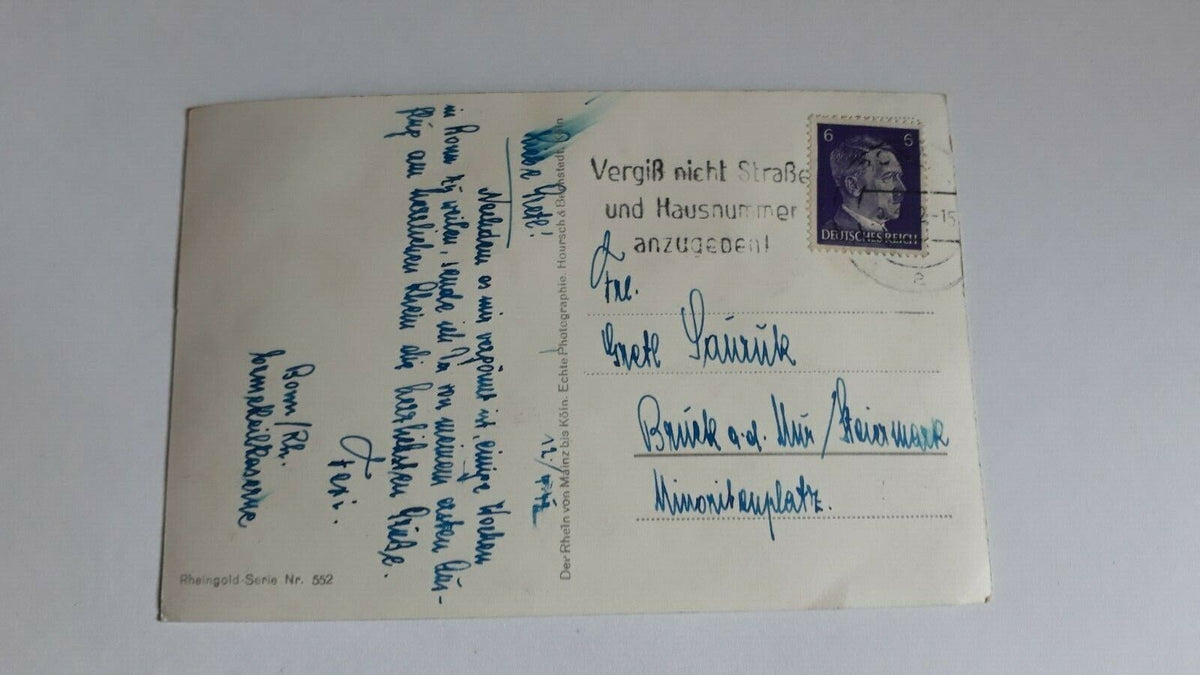 Liebe Gretl!
Nachdem es mir vergönnt ist einige Wochen
in Bonn zu weilen, sende ich Dir von meinem ersten Aus-
flug am herrlichen Rhein die herzlichsten Grüße.
Feri.
Bonn/Rh.
Ermekeilkaserne
Rheingold-Serie Nr. 552
Der Rhein von Mainz bis Köln. Echte Photographie. Hoursch & Bechstedt, Köln
Vergiß nicht Straße
und Hausnummer
anzugeben!
6 6
DEUTSCHES REICH
2-15
a
Frl.
Gretl Saunik
Bruck a.d. Mur/Steiermark
Minoritenplatz.